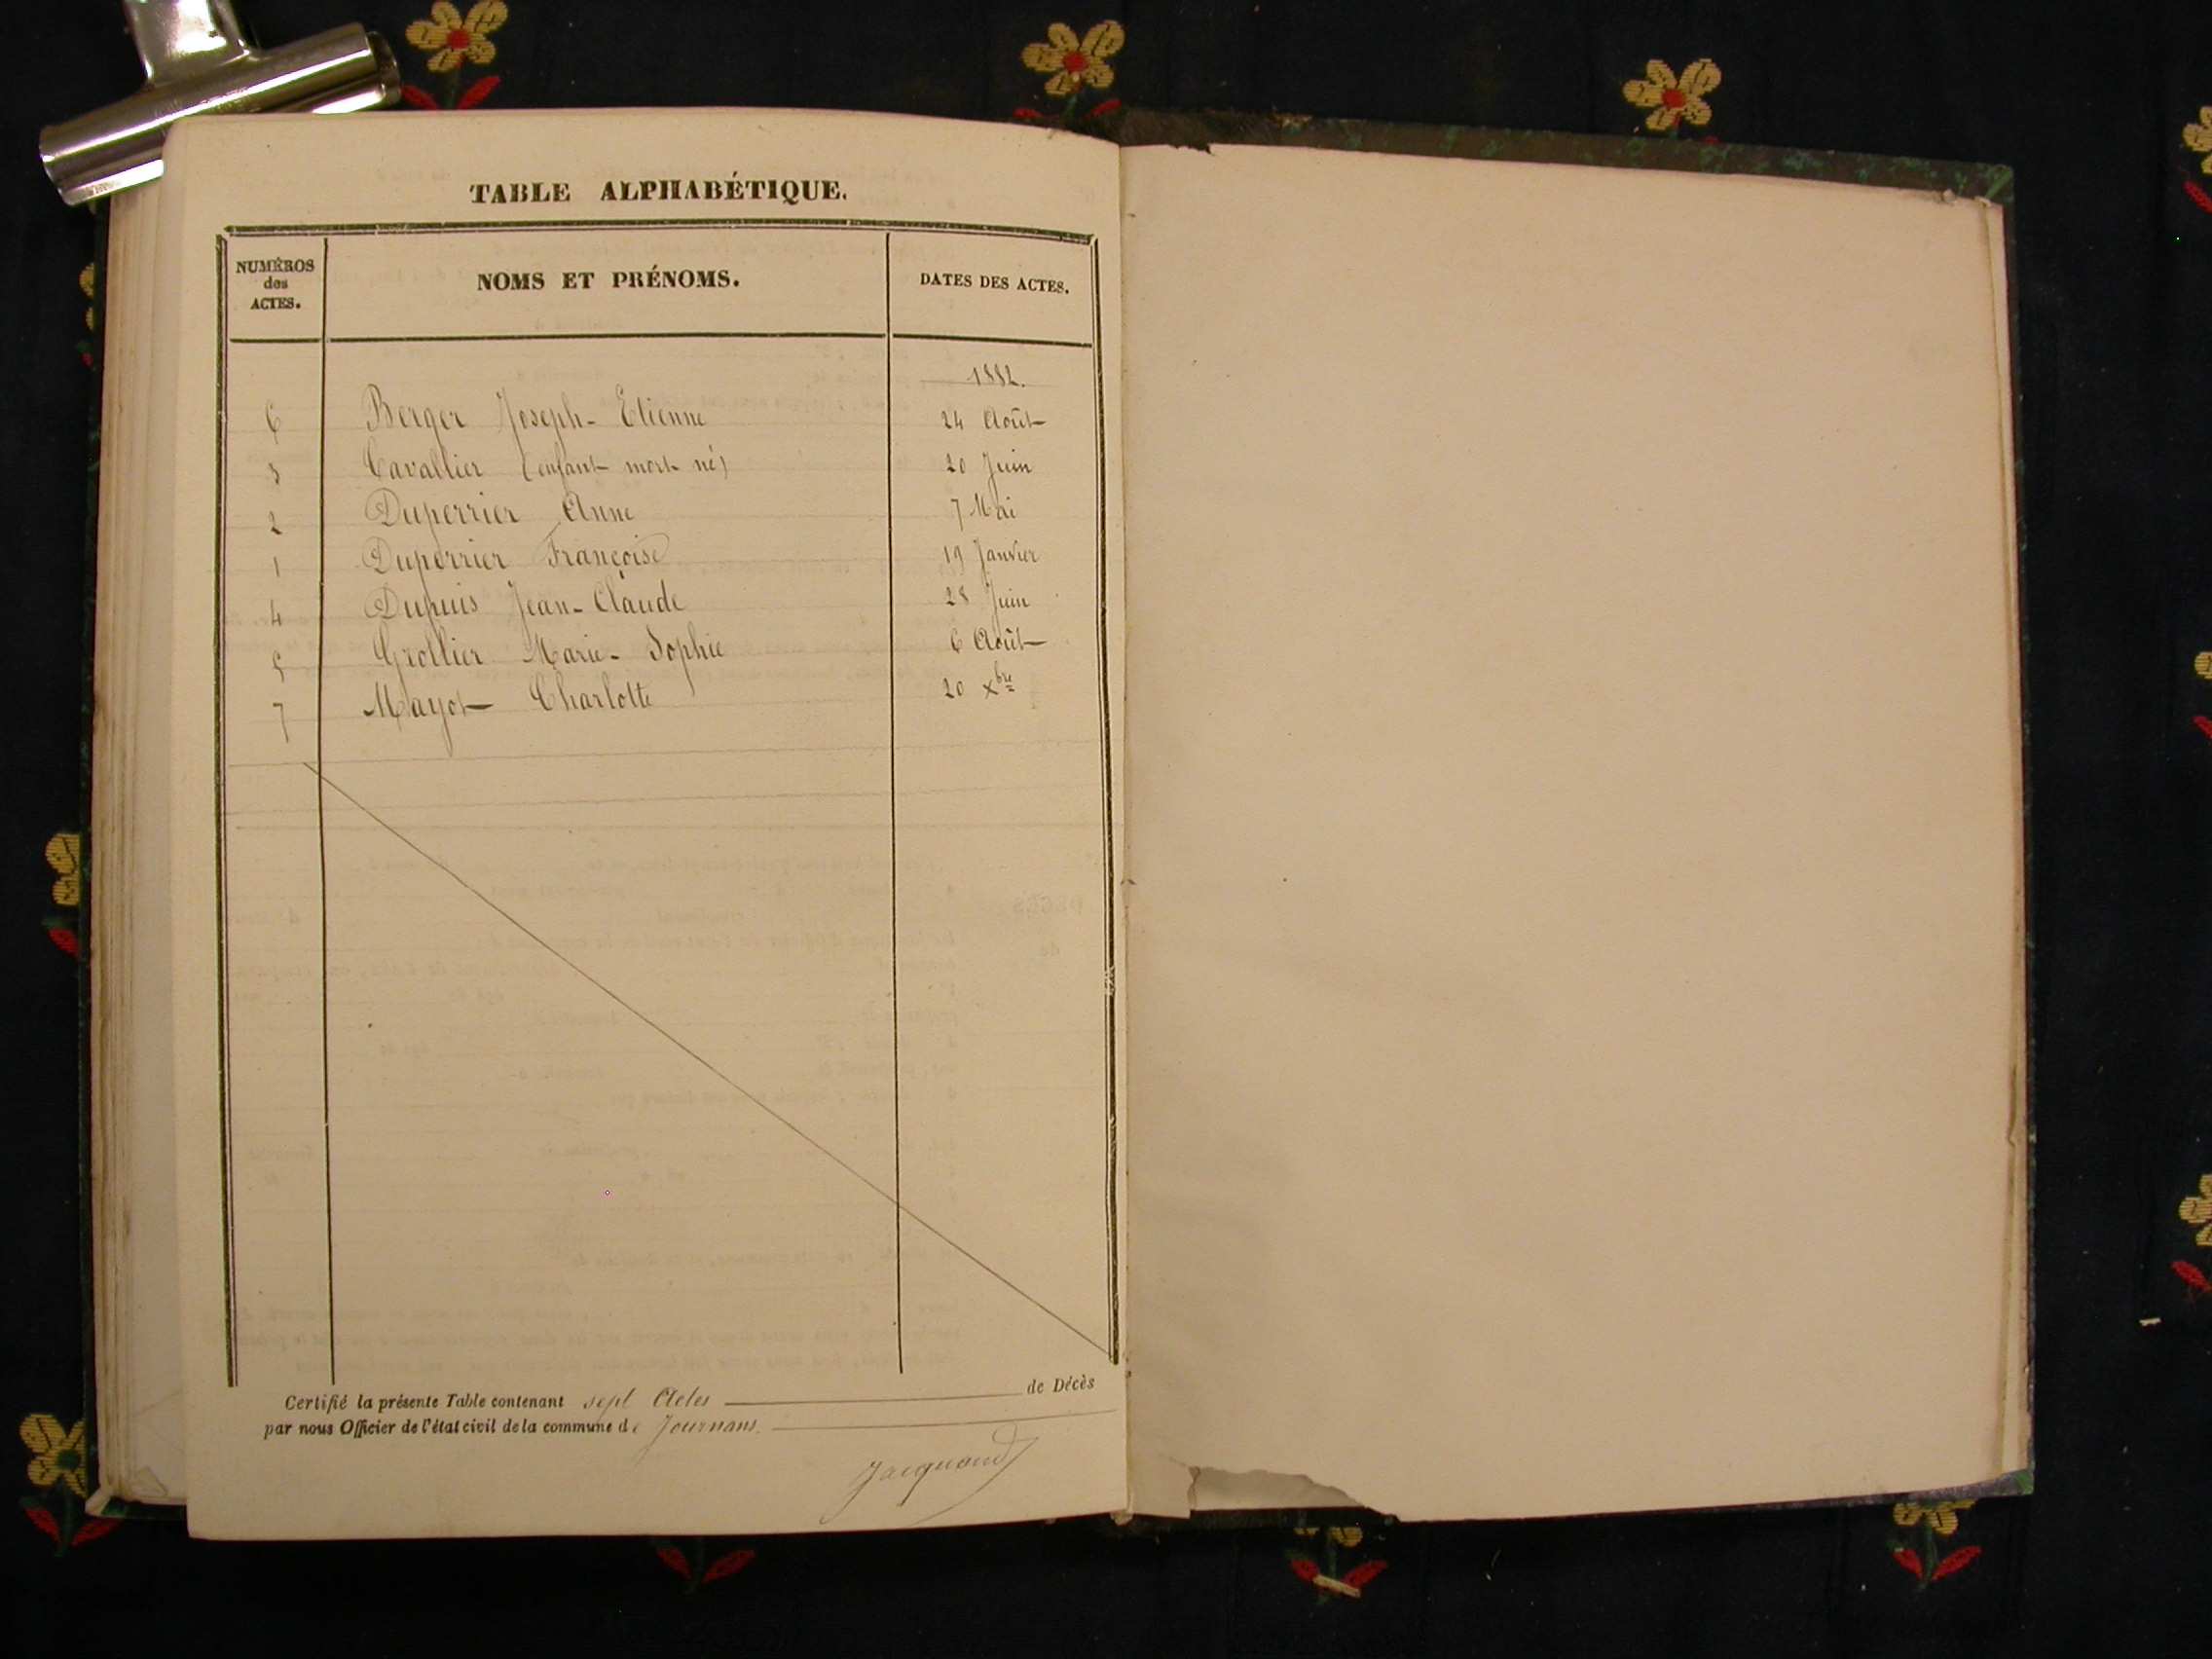 TABLE ALPHABÉTIQUE.
NUMÉROS des ACTES. NOMS ET PRÉNOMS. DATES DES ACTES.
1882.
6 Berger Joseph-Etienne 24 Août
3 Cavallier (enfant mort né) 20 Juin
2 Duperrier Anne 7 Mai
1 Duperrier Françoise 19 Janvier
4 Dupuis Jean-Claude 28 Juin
5 Grollier Marie-Sophie 6 Août
7 Mayot Charlotte 20 Xbre
Certifié la présente Table contenant sept Actes de Décès
par nous Officier de l'état civil de la commune de Journans.
Jacquand